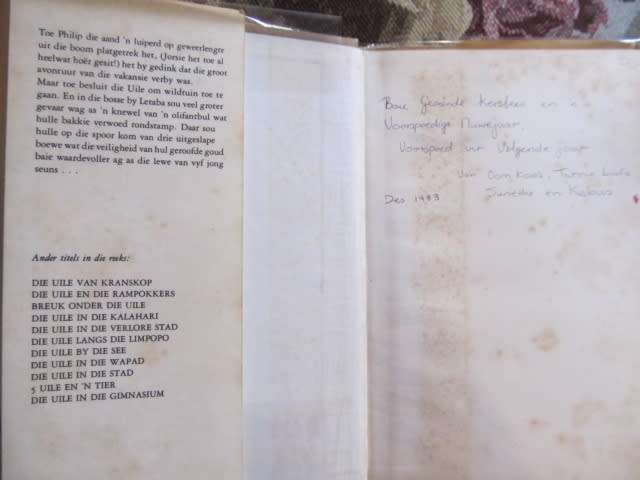 Toe Philip die aand 'n luiperd op geweerlengte
uit die boom platgetrek het, (Jorsie het toe al
heelwat hoër gesit!) het hy gedink dat die groot
avontuur van die vakansie verby was.
Maar toe besluit die Uile om wildtuin toe te
gaan. En in die bosse by Letaba sou veel groter
gevaar wag as 'n knewel van 'n olifantbul wat
hulle bakkie verwoed rondstamp. Daar sou
hulle op die spoor kom van drie uitgeslape
boewe wat die veiligheid van hul geroofde goud
baie waardevoller ag as die lewe van vyf jong
seuns . . .
Ander titels in die reeks:
DIE UILE VAN KRANSKOP
DIE UILE EN DIE RAMPOKKERS
BREUK ONDER DIE UILE
DIE UILE IN DIE KALAHARI
DIE UILE IN DIE VERLORE STAD
DIE UILE LANGS DIE LIMPOPO
DIE UILE BY DIE SEE
DIE UILE IN DIE WAPAD
DIE UILE IN DIE STAD
5 UILE EN 'N TIER
DIE UILE IN DIE GIMNASIUM
Baie Geseënde Kersfees en 'n
Voorspoedige Nuwejaar.
Voorspoed vir Volgende jaar
Van Oom Koos, Tannie
en Kobus
Des 1983